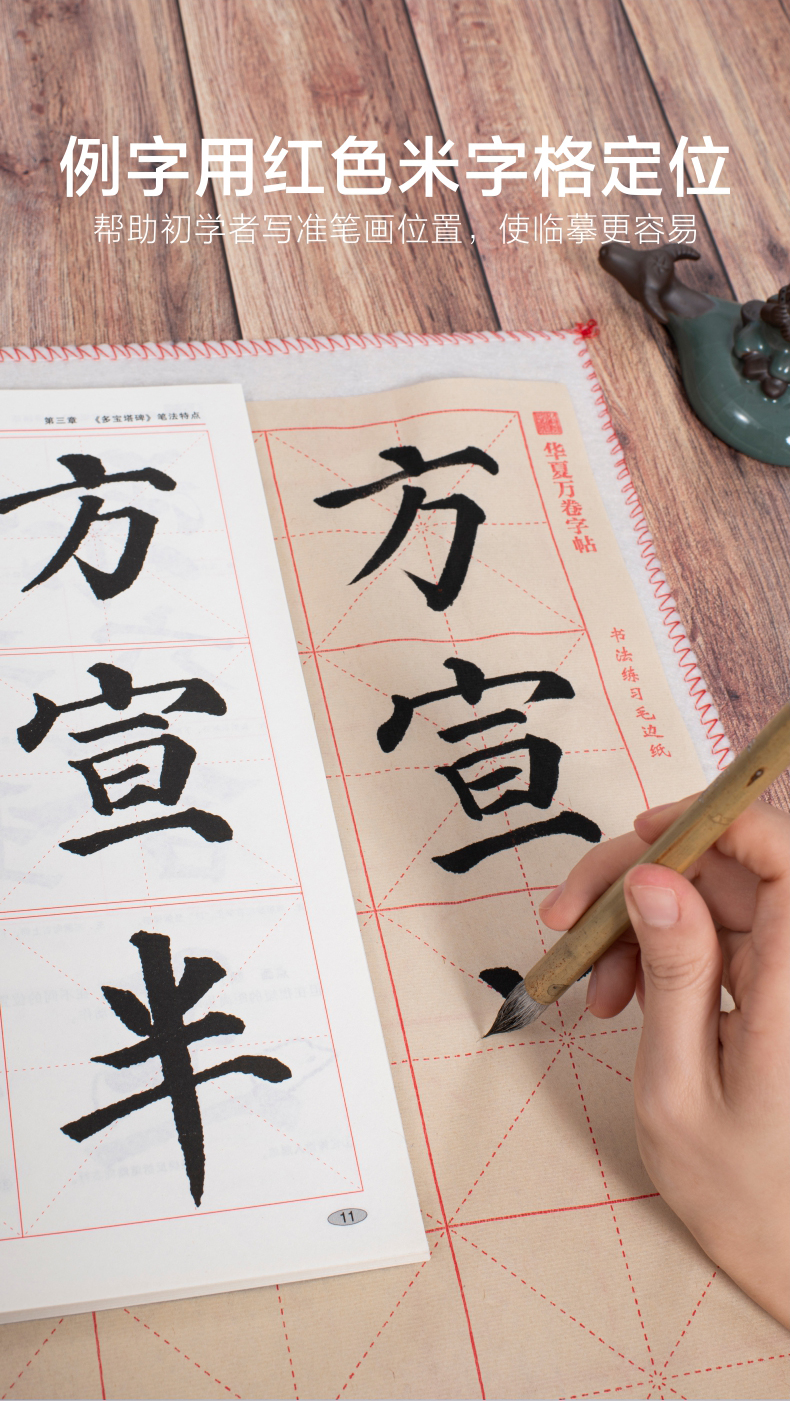 例字用红色米字格定位
帮助初学者写准笔画位置，使临摹更容易
第三章 《多宝塔碑》笔法特点
方
宣
半
11
方
宣
华夏万卷字帖
书法练习毛边纸